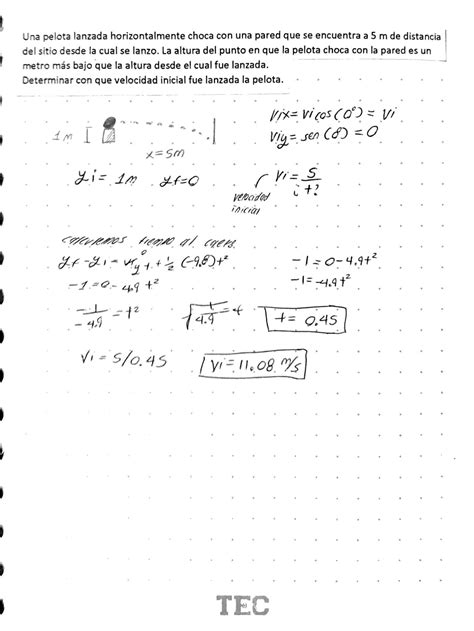 Una pelota lanzada horizontalmente choca con una pared que se encuentra a 5 m de distancia
del sitio desde la cual se lanzo. La altura del punto en que la pelota choca con la pared es un
metro más bajo que la altura desde el cual fue lanzada.
Determinar con que velocidad inicial fue lanzada la pelota.
Vix= Vi cos(0°) = Vi
1m
Viy= sen(0) = 0
x=5m
yi= 1m yf=0
Vi = 5/t?
velocidad
inicial
calculemos tiempo al caer.
yf-yi = viyt + 1/2 (-9,8)t²
-1=0-4.9t²
-1=0-4.9t²
-1=-4.9t²
-1/-4.9 = t²
√1/4.9 = t
t= 0.45
Vi = 5/0.45
Vi=11.08 m/s
TEC